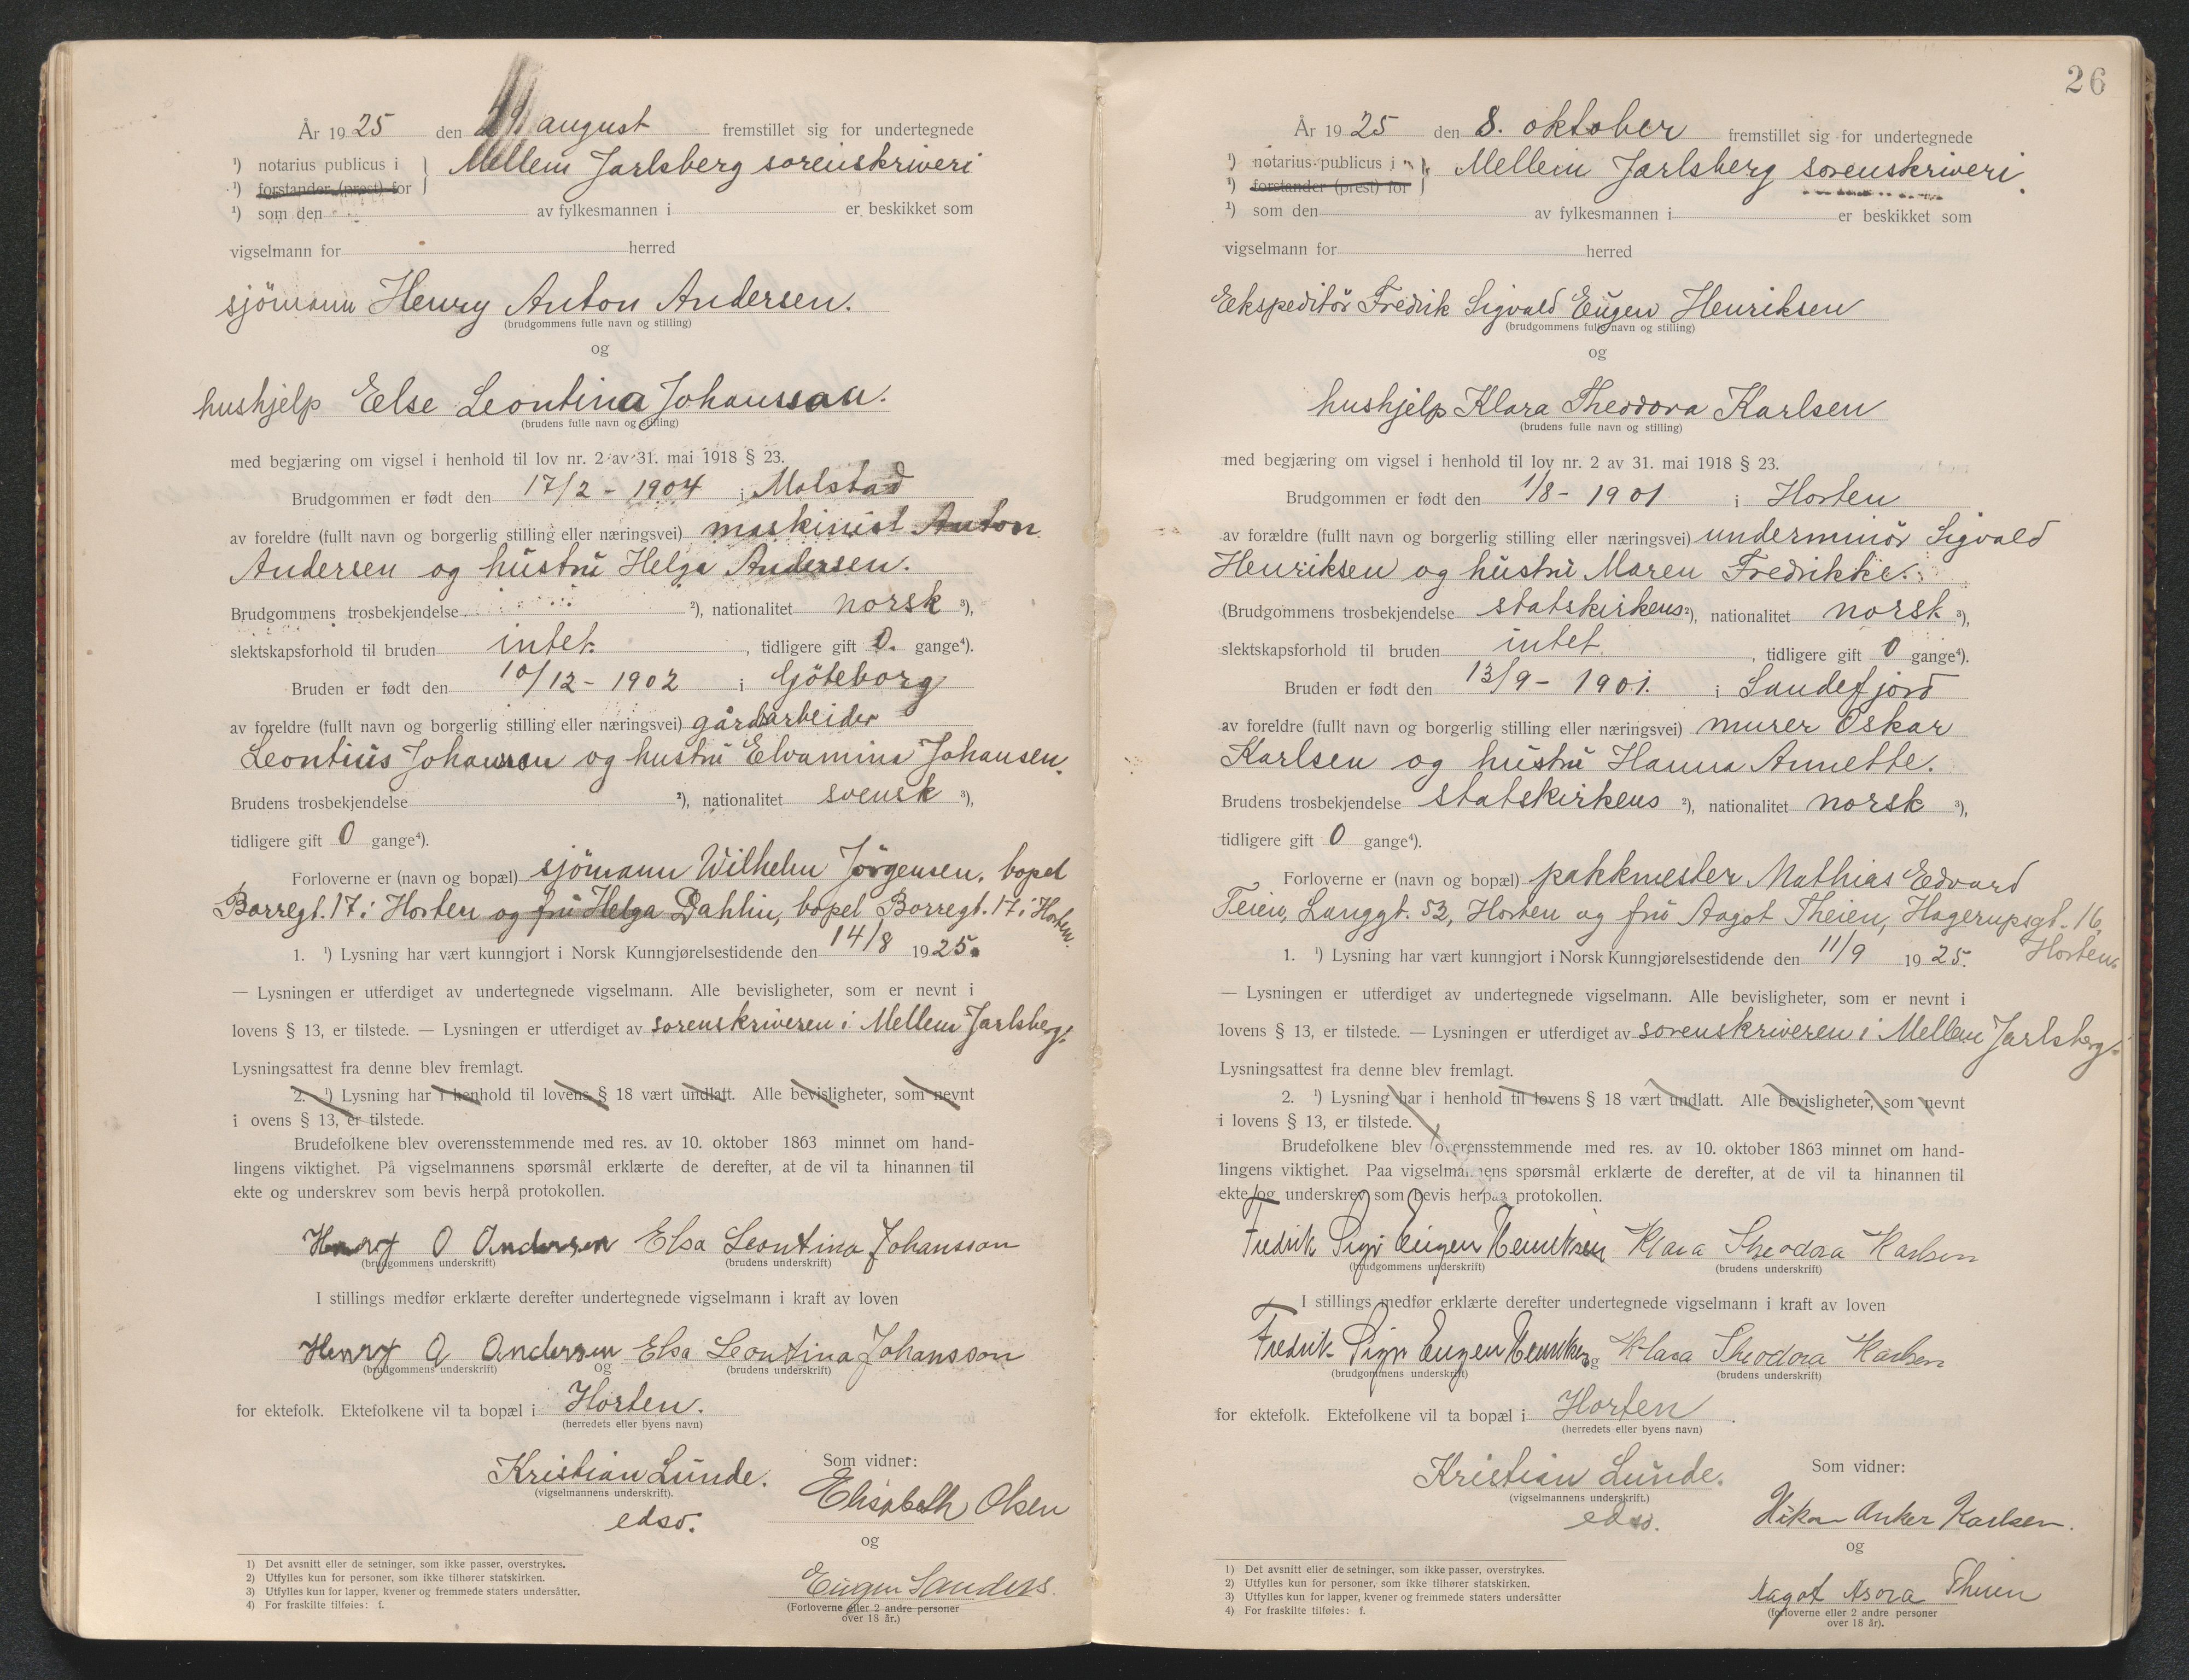 År 1925 den 29. august fremstillet sig for undertegnede
¹) notarius publicus i } Mellem Jarlsberg sorenskriveri
¹) forstander (prest) for
¹) som den av fylkesmannen i er beskikket som
vigselmann for herred
sjömann Henry Anton Andersen.
(brudgommens fulle navn og stilling)
og
hushjelp Else Leontina Johansson.
(brudens fulle navn og stilling)
med begjæring om vigsel i henhold til lov nr. 2 av 31. mai 1918 § 23.
Brudgommen er født den 17/2 - 1904 i Molstad
av foreldre (fullt navn og borgerlig stilling eller næringsvei) maskinist Anton
Andersen og hustru Helga Andersen.
Brudgommens trosbekjendelse ²), nationalitet norsk ³),
slektskapsforhold til bruden intet. , tidligere gift 0. gange⁴).
Bruden er født den 10/12 - 1902 i Göteborg
av foreldre (fullt navn og borgerlig stilling eller næringsvei) gårdarbeider
Leontius Johansen og hustru Elvamina Johansen.
Brudens trosbekjendelse ²), nationalitet svensk ³),
tidligere gift 0 gange⁴).
Forloverne er (navn og bopæl) sjömann Wilhelm Jörgensen, bopel
Borregt. 17 i Horten og fru Helga Dahlin, bopel Borregt. 17 i Horten.
1. ¹) Lysning har vært kunngjort i Norsk Kunngjørelsestidende den 14/8 1925.
— Lysningen er utferdiget av undertegnede vigselmann. Alle bevisligheter, som er nevnt i
lovens § 13, er tilstede. — Lysningen er utferdiget av sorenskriveren i Mellem Jarlsberg.
Lysningsattest fra denne blev fremlagt.
2. ¹) Lysning har i henhold til lovens § 18 vært undlatt. Alle bevisligheter, som nevnt
i ovens § 13, er tilstede.
Brudefolkene blev overensstemmende med res. av 10. oktober 1863 minnet om hand-
lingens viktighet. På vigselmannens spørsmål erklærte de derefter, at de vil ta hinannen til
ekte og underskrev som bevis herpå protokollen.
Henry A Andersen Elsa Leontina Johansson
(brudgommens underskrift) (brudens underskrift)
I stillings medfør erklærte derefter undertegnede vigselmann i kraft av loven
Henry A Andersen Elsa Leontina Johansson
(brudgommens underskrift) og (brudens underskrift)
for ektefolk. Ektefolkene vil ta bopæl i Horten.
(herredets eller byens navn)
Kristian Lunde.
(vigselmannens underskrift).
edsv.
Som vidner:
Elisabeth Olsen
og
Eugen Sanders
(Forloverne eller 2 andre personer
over 18 år.)
1) Det avsnitt eller de setninger, som ikke passer, overstrykes.
2) Utfylles kun for personer, som ikke tilhører statskirken.
3) Utfylles kun for lapper, kvener og fremmede staters undersåtter.
4) For fraskilte tilføies: f.
26
År 1925 den 8. oktober fremstillet sig for undertegnede
¹) notarius publicus i } Mellem Jarlsberg sorenskriveri.
¹) forstander (prest) for
¹) som den av fylkesmannen i er beskikket som
vigselmann for herred
Ekspeditör Fredrik Sigvald Eugen Henriksen
(brudgommens fulle navn og stilling)
og
hushjelp Klara Theodora Karlsen
(brudens fulle navn og stilling)
med begjæring om vigsel i henhold til lov nr. 2 av 31. mai 1918 § 23.
Brudgommen er født den 1/8 - 1901 i Horten
av forældre (fullt navn og borgerlig stilling eller næringsvei) underminör Sigvald
Henriksen og hustru Maren Fredrikke.
(Brudgommens trosbekjendelse statskirkens ²), nationalitet norsk ³),
slektskapsforhold til bruden intet. , tidligere gift 0 gange⁴).
Bruden er født den 13/9 - 1901. i Sandefjord
av foreldre (fullt navn og borgerlig stilling eller næringsvei) murer Oskar
Karlsen og hustru Hanna Annette.
Brudens trosbekjendelse statskirkens ²), nationalitet norsk ³),
tidligere gift 0 gange⁴).
Forloverne er (navn og bopæl) pakkmester Mathias Edvard
Teien, Langgt. 53, Horten og fru Aagot Theien, Hagerupsgt. 16,
Horten.
1. ¹) Lysning har vært kunngjort i Norsk Kunngjørelsestidende den 11/9 1925.
— Lysningen er utferdiget av undertegnede vigselmann. Alle bevisligheter, som er nevnt i
lovens § 13, er tilstede. — Lysningen er utferdiget av sorenskriveren i Mellem Jarlsberg.
Lysningsattest fra denne blev fremlagt.
2. ¹) Lysning har i henhold til lovens § 18 vært undlatt. Alle bevisligheter, som nevnt
i lovens § 13, er tilstede.
Brudefolkene blev overensstemmende med res. av 10. oktober 1863 minnet om hand-
lingens viktighet. Paa vigselmannens spørsmål erklærte de derefter, at de vil ta hinannen til
ekte og underskrev som bevis herpaa protokollen.
Fredrik Sigv Eugen Henriksen Klara Theodora Karlsen
(brudgommens underskrift) (brudens underskrift)
I stillings medfør erklærte derefter undertegnede vigselmann i kraft av loven
Fredrik Sigv Eugen Henriksen og Klara Theodora Karlsen
(brudgommens underskrift) (brudens underskrift)
for ektefolk. Ektefolkene vil ta bopæl i Horten.
(herredets eller byens navn)
Kristian Lunde.
(vigselmannens underskrift.)
edsv.
Som vidner:
Håkon Anker Karlsen.
og
Aagot Asora Theien
(forloverne eller 2 andre personer
over 18 år).
1) Det avsnitt eller de setninger, som ikke passer, overstrykes.
2) Utfylles kun for personer, som ikke tilhører statskirken.
3) Utfylles kun for lapper, kvener og fremmede staters undersåtter
4) For fraskilte tilføies: f.